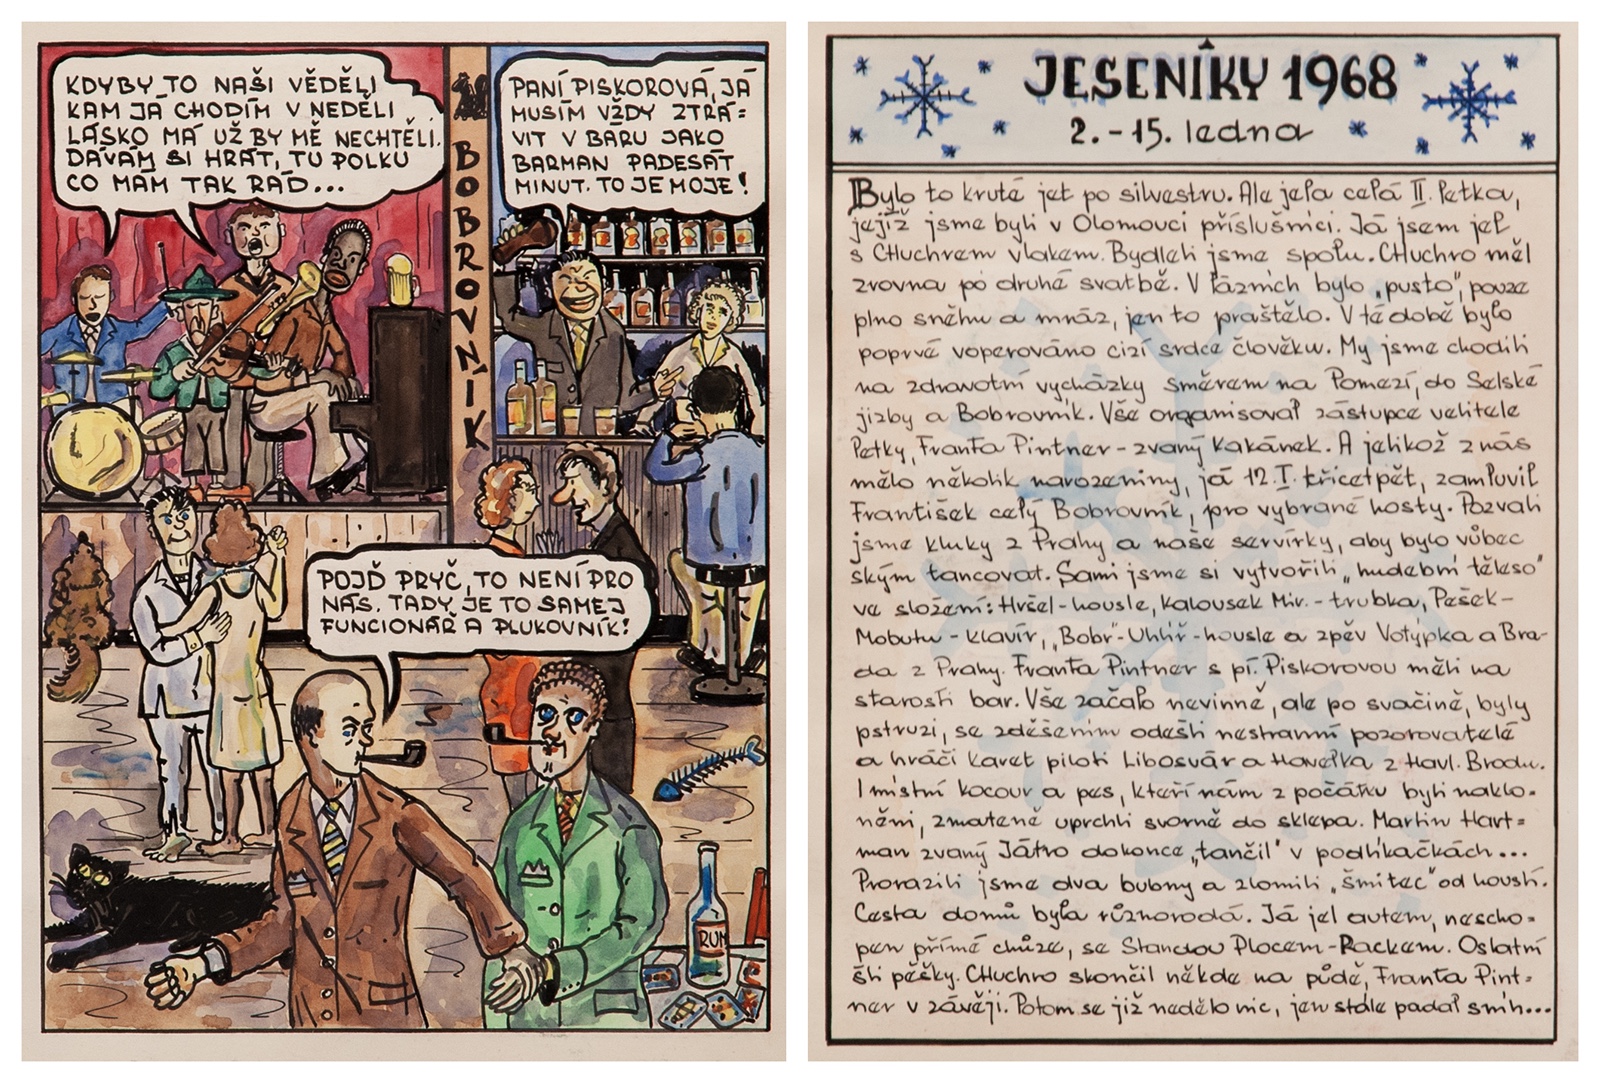 KDYBY TO NAŠI VĚDĚLI
KAM JÁ CHODÍM V NEDĚLI
LÁSKO MÁ UŽ BY MĚ NECHTĚLI.
DÁVÁM SI HRÁT, TU POLKU
CO MÁM TAK RÁD...
BOBROVNÍK
PANÍ PISKOROVÁ, JÁ
MUSÍM VŽDY ZTRA=
VIT V BARU JAKO
BARMAN PADESÁT
MINUT. TO JE MOJE!
POJĎ PRYČ, TO NENÍ PRO
NÁS. TADY JE TO SAMEJ
FUNCIONÁŘ A PLUKOVNÍK!
RUM
JESENÍKY 1968
2. - 15. ledna
Bylo to kruté jet po silvestru. Ale jela celá II. Letka,
jejíž jsme byli v Olomouci příslušníci. Já jsem jel
s CHuchrem vlakem. Bydleli jsme spolu. CHuchro měl
zrovna po druhé svatbě. V lázních bylo „pusto", pouze
plno sněhu a mráz, jen to praštělo. V té době bylo
poprvé voperováno cizí srdce člověku. My jsme chodili
na zdravotní vycházky směrem na Pomezí, do Selské
jizby a Bobrovník. Vše organisoval zástupce velitele
Letky, Franta Pintner - zvaný Kakánek. A jelikož z nás
mělo několik narozeniny, já 12. I. třicetpět, zamluvil
František celý Bobrovník, pro vybrané hosty. Pozvali
jsme kluky z Prahy a naše servírky, aby bylo vůbec
s kým tancovat. Sami jsme si vytvořili „hudební těleso"
ve složení: Hršel - housle, Kalousek Mir. - trubka, Pešek -
Mobutu - klavír, „Bobr" - Uhlíř - housle a zpěv Votýpka a Bra-
da z Prahy. Franta Pintner s pí. Piskorovou měli na
starosti bar. Vše začalo nevinně, ale po svačině, byly
pstruzi, se zděšením odešli nestranní pozorovatelé
a hráči karet piloti Libosvár a Havelka z Havl. Brodu.
I místní kocour a pes, kteří nám z počátku byli naklo=
něni, zmateně uprchli svorně do sklepa. Martin Hart=
man zvaný Játro dokonce „tančil" v podlíkačkách...
Prorazili jsme dva bubny a zlomili „šmitec" od houslí.
Cesta domů byla různorodá. Já jel autem, nescho=
pen přímé chůze, se Standou Plocem - Rackem. Ostatní
šli pěšky. CHuchro skončil někde na půdě, Franta Pint=
ner v závěji. Potom se již nedělo nic, jen stále padal sníh...